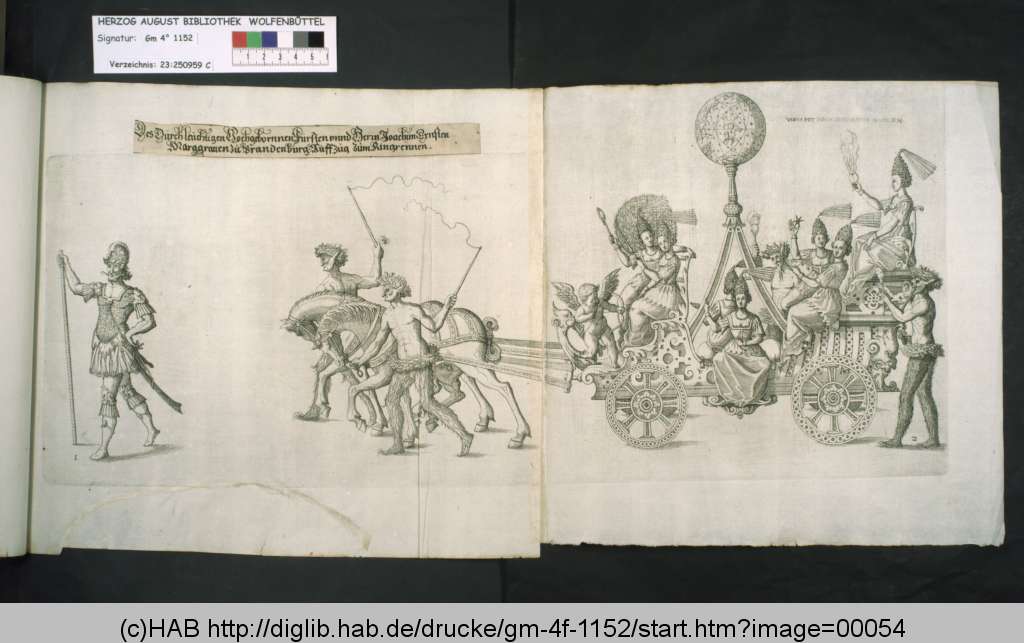 HERZOG AUGUST BIBLIOTHEK WOLFENBÜTTEL
Signatur: Gm 4° 1152
1 2 3 4 5
Verzeichnis: 23:250959 C
Des Durchleichtigen Hochgebornnen Fursten vnnd Herrn Joachim Ernsten
Marggrauen zu Brandenburg Auffzug zum Ringrennen.
1
2
(c)HAB http://diglib.hab.de/drucke/gm-4f-1152/start.htm?image=00054